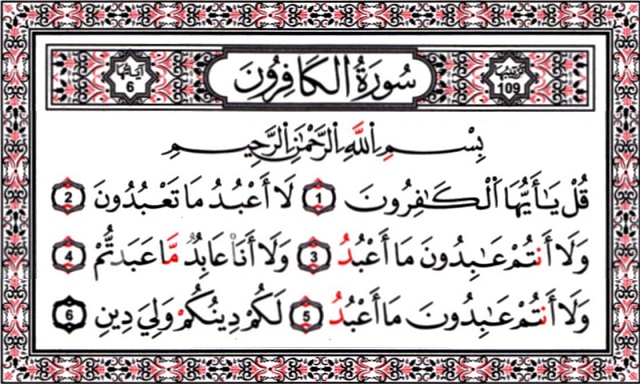 ترتيبها 109 سُورَةُ الكَافِرُونَ آياتها 6
بِسْمِ اِ۬للَّهِ اِ۬لرَّحْمَٰنِ اِ۬لرَّحِيمِ
قُلْ يَـٰٓأَيُّهَا اَ۬لْكَـٰفِرُونَ 1 لَآ أَعْبُدُ مَا تَعْبُدُونَ 2
وَلَآ أَنتُمْ عَـٰبِدُونَ مَآ أَعْبُدُ 3 وَلَآ أَنَا۠ عَابِدٌ مَّا عَبَدتُّمْ 4
وَلَآ أَنتُمْ عَـٰبِدُونَ مَآ أَعْبُدُ 5 لَكُمْ دِينُكُمْ وَلِيَ دِينِ 6